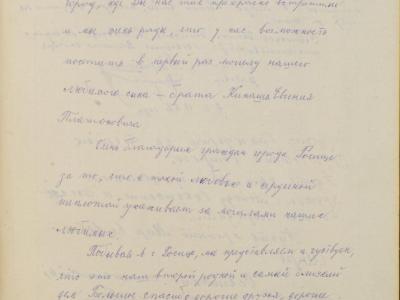 город, где вы нас так прекрасно встретили
и мы очень рады, что у нас возможность
посетить в первый раз могилу нашего
любимого сына – брата Кинаша Евгения
Платоновича
благодарим граждан города
за то, что с такой любовью и сердечной
теплотой ухаживают за могилами наших
любимых.
Побывав в г. мы представляем и чувствуем,
что это наш второй родной и самый близкий
дом Польше спасибо дорогие друзья, дорогие